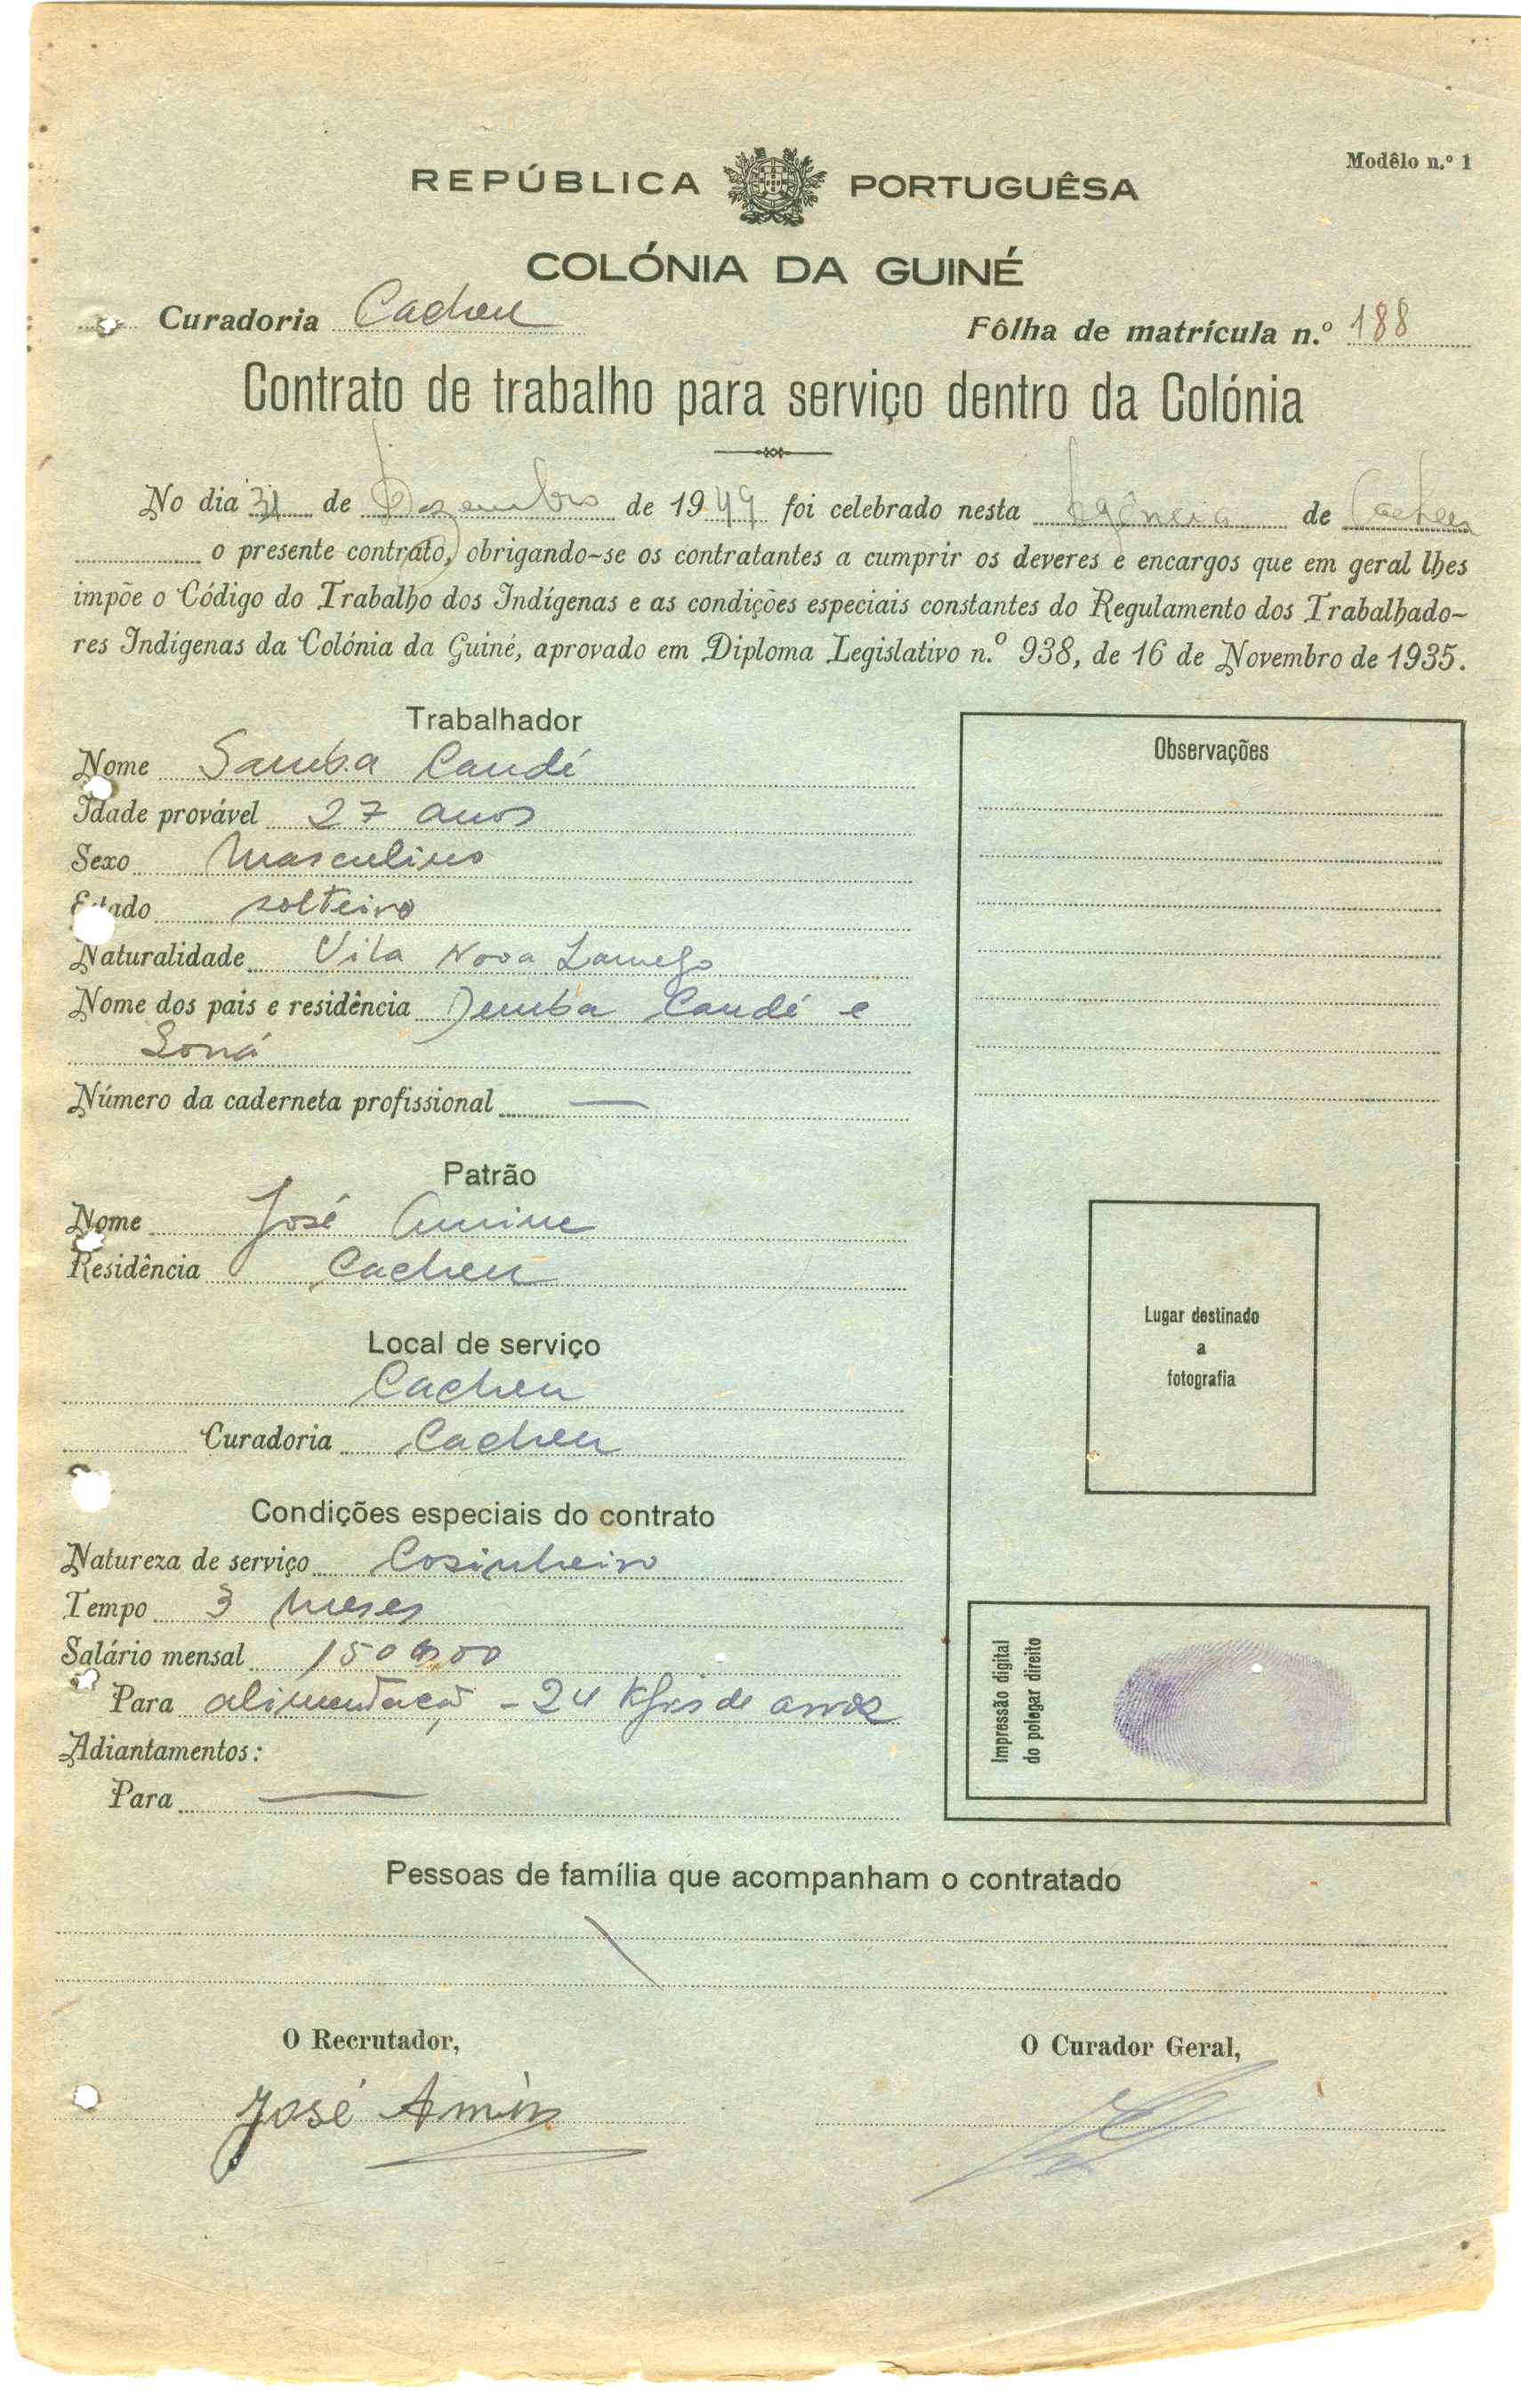 Modêlo n.º 1
REPÚBLICA PORTUGUÊSA
COLÓNIA DA GUINÉ
Curadoria Cacheu
Fôlha de matrícula n.º 188
Contrato de trabalho para serviço dentro da Colónia
No dia 31 de Dezembro de 1949 foi celebrado nesta Agência de Cacheu
o presente contrato, obrigando-se os contratantes a cumprir os deveres e encargos que em geral lhes
impõe o Código do Trabalho dos Indígenas e as condições especiais constantes do Regulamento dos Trabalhado-
res Indígenas da Colónia da Guiné, aprovado em Diploma Legislativo n.º 938, de 16 de Novembro de 1935.
Trabalhador
Nome Samba Candé
Idade provável 27 anos
Sexo Masculino
Estado solteiro
Naturalidade Vila Nova Lamego
Nome dos pais e residência Demba Candé e
Soná
Número da caderneta profissional —
Patrão
Nome José Amine
Residência Cacheu
Local de serviço
Cacheu
Curadoria Cacheu
Condições especiais do contrato
Natureza de serviço Cosinheiro
Tempo 3 meses
Salário mensal 150$00
Para alimentação - 24 Kgrs de arroz
Adiantamentos:
Para —
Observações
Lugar destinado
a
fotografia
Impressão digital
do polegar direito
Pessoas de família que acompanham o contratado
O Recrutador,
José Amin
O Curador Geral,